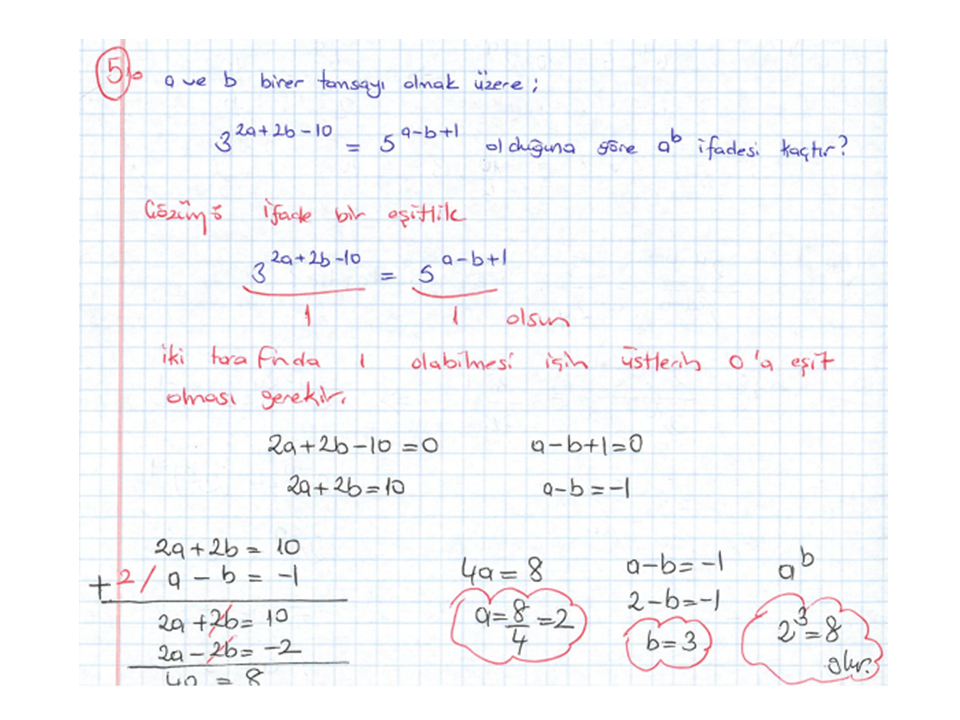 5. a ve b birer tamsayı olmak üzere;
3^(2a+2b-10) = 5^(a-b+1) olduğuna göre a^b ifadesi kaçtır?
Çözüm: ifade bir eşitlik
3^(2a+2b-10) = 5^(a-b+1)
1 1 olsun
iki tarafında 1 olabilmesi için üstlerin 0'a eşit
olması gerekir.
2a+2b-10=0 a-b+1=0
2a+2b=10 a-b=-1
2a+2b= 10
+ 2/ a - b = -1
2a+2b= 10
2a-2b= -2
4a = 8
4a=8
a=8/4=2
a-b=-1
2-b=-1
b=3
a^b
2^3=8
olur.